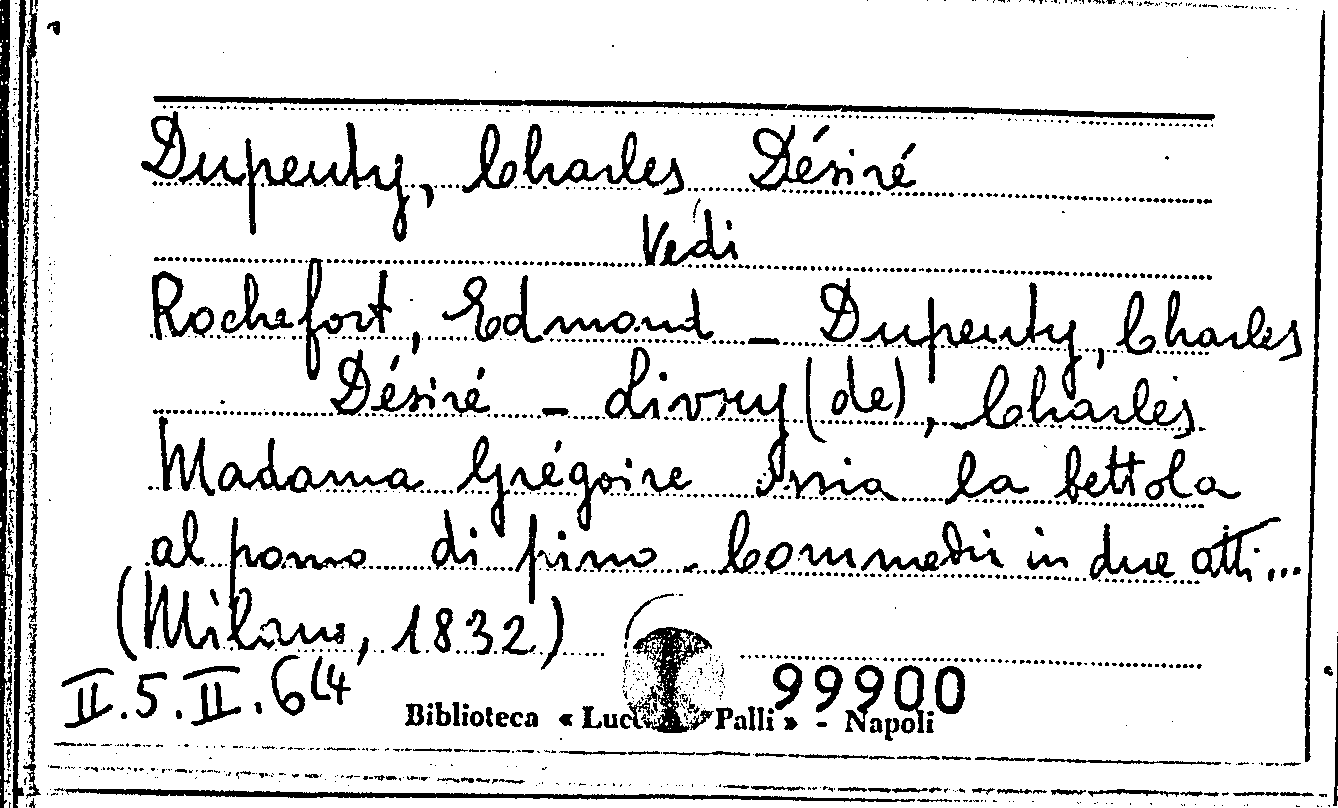 Dupeuty, Charles Désiré
Vedi
Rochefort, Edmond _ Dupeuty, Charles
Désiré _ Livry (de), Charles
Madama Grégoire Ossia la bettola
al pomo di pino. Commedia in due atti...
(Milano, 1832)
II.5.II.6(4
99900
Biblioteca « Palli » - Napoli